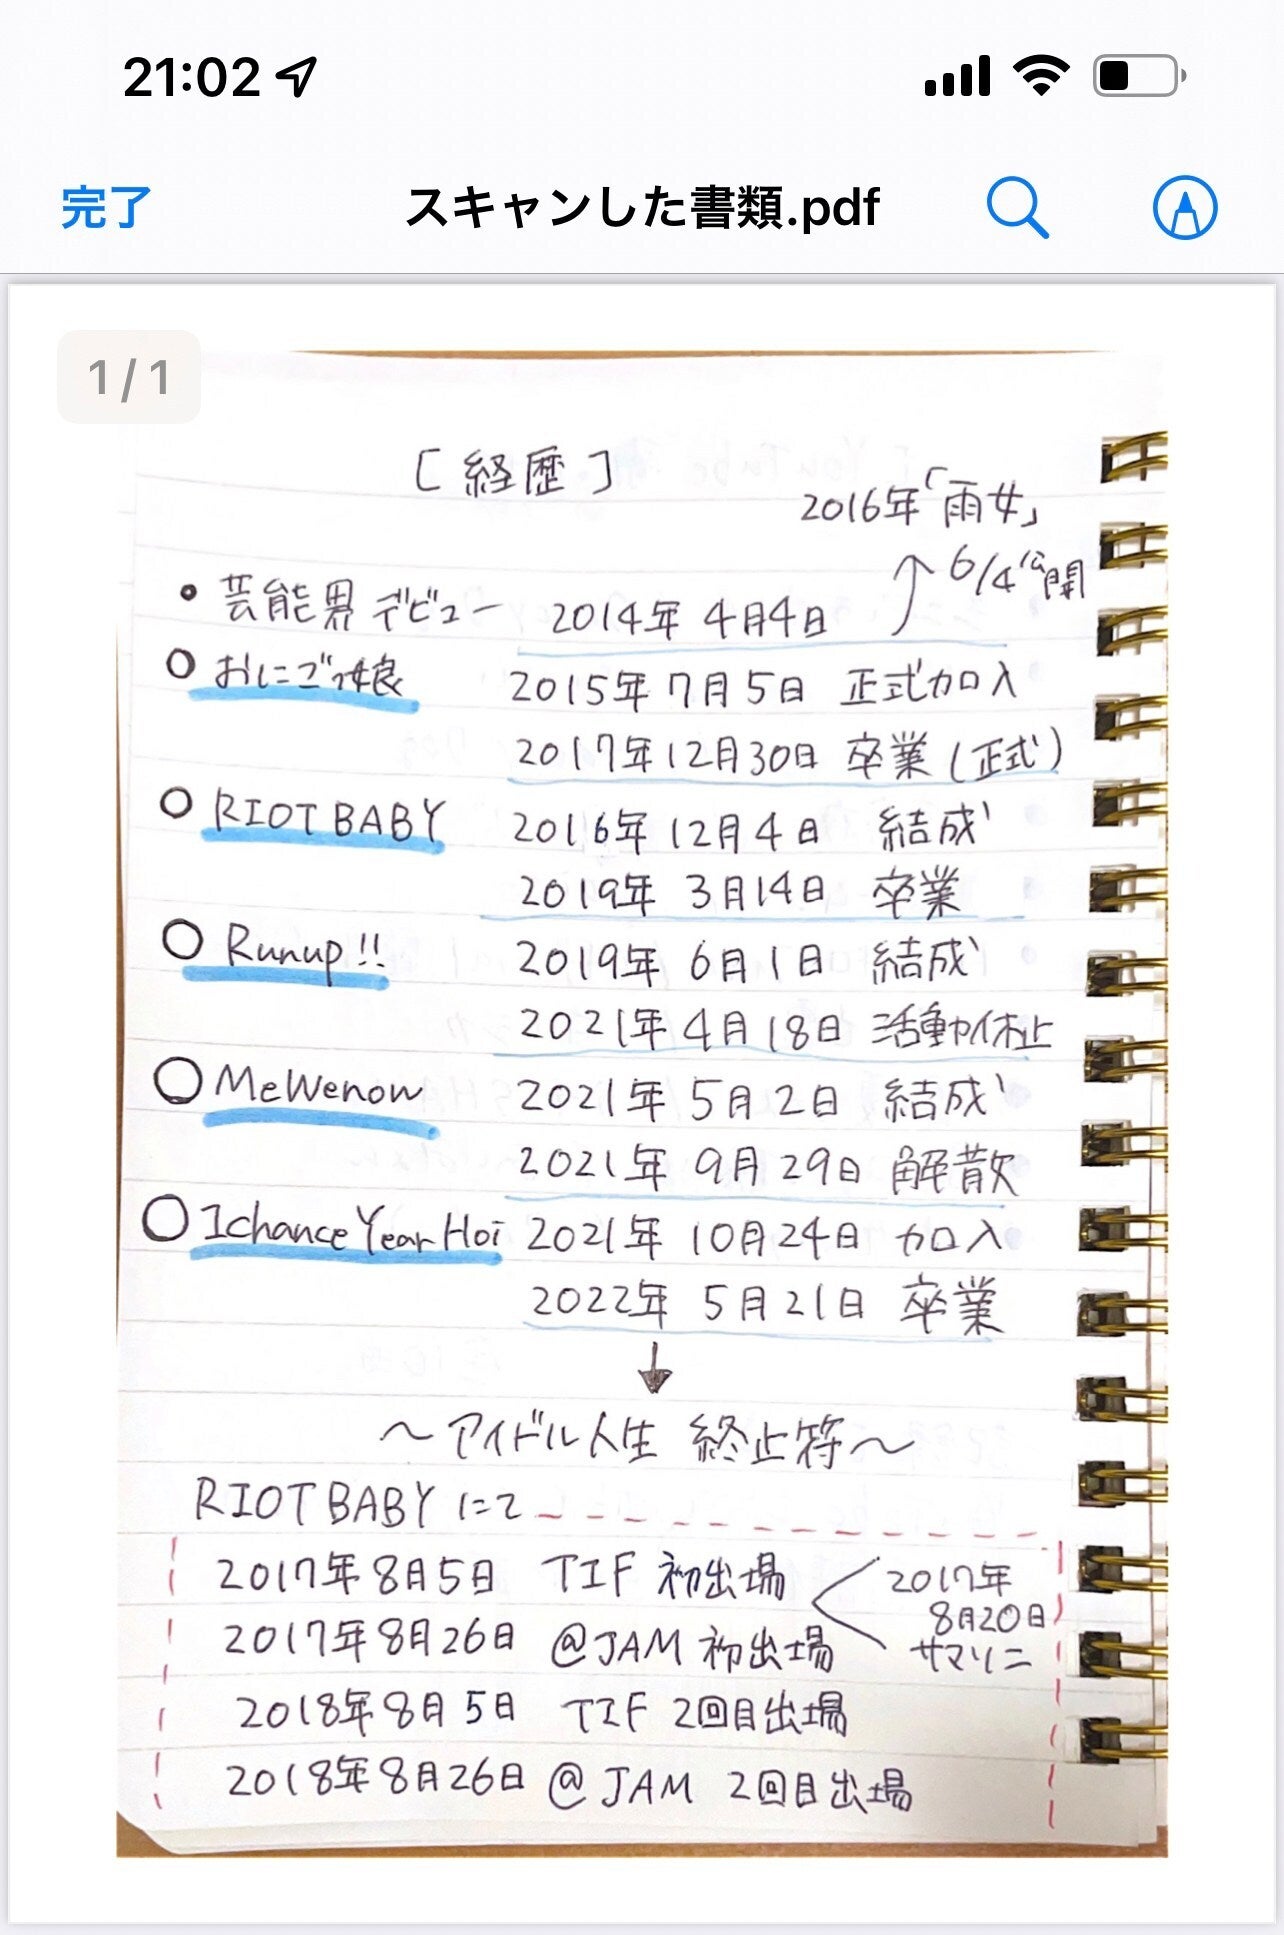 21:02
完了 スキャンした書類.pdf
1 / 1
[経歴]
2016年「雨女」
6/4公開
・芸能界デビュー 2014年 4月4日
○おにごっ娘 2015年 7月5日 正式加入
2017年12月30日 卒業(正式)
○RIOT BABY 2016年 12月4日 結成
2019年 3月14日 卒業
○Runup!! 2019年 6月1日 結成
2021年4月18日 活動休止
○MeWenow 2021年 5月2日 結成
2021年 9月29日 解散
○1chance Year Hoi 2021年 10月24日 加入
2022年 5月21日 卒業
↓
〜アイドル人生 終止符〜
RIOT BABY にて
2017年8月5日 TIF 初出場
2017年8月26日 @JAM 初出場
2017年
8月20日
サマソニ
2018年8月5日 TIF 2回目出場
2018年8月26日 @JAM 2回目出場